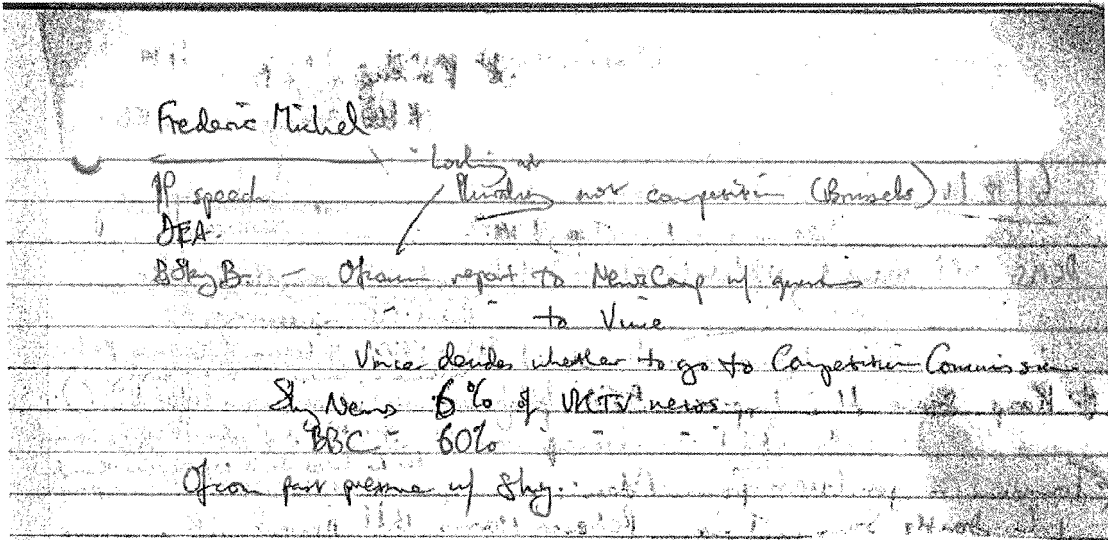 Frederic Michel
Looking at
IP speech Plurality not competition (Brussels)
DEA.
BSkyB. - Ofcom report to NewsCorp w/ questions
to Vince
Vince decides whether to go to Competition Commission
Sky News 6% of UK TV news
BBC - 60%
Ofcom past w/ Sky.